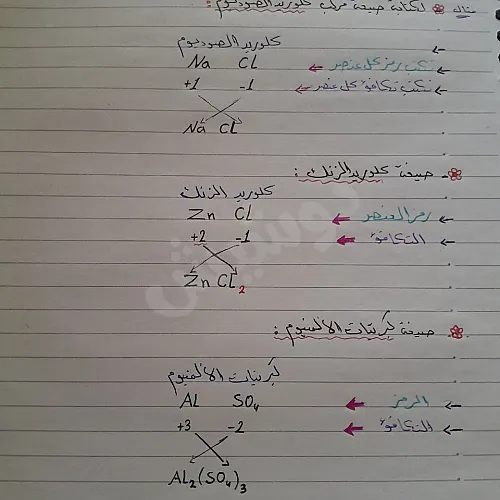 مثال لكتابة صيغة مركب كلوريد الصوديوم:
كلوريد الصوديوم
← نكتب رمز كل عنصر ← Na Cl
← نكتب تكافؤ كل عنصر ← +1 -1
Na Cl
صيغة كلوريد الزنك:
كلوريد الزنك
← رمز العنصر ← Zn Cl
← التكافؤ ← +2 -1
Zn Cl2
صيغة كبريتات الألمنيوم:
كبريتات الألمنيوم
← الرمز ← Al SO4
← التكافؤ ← +3 -2
Al2(SO4)3